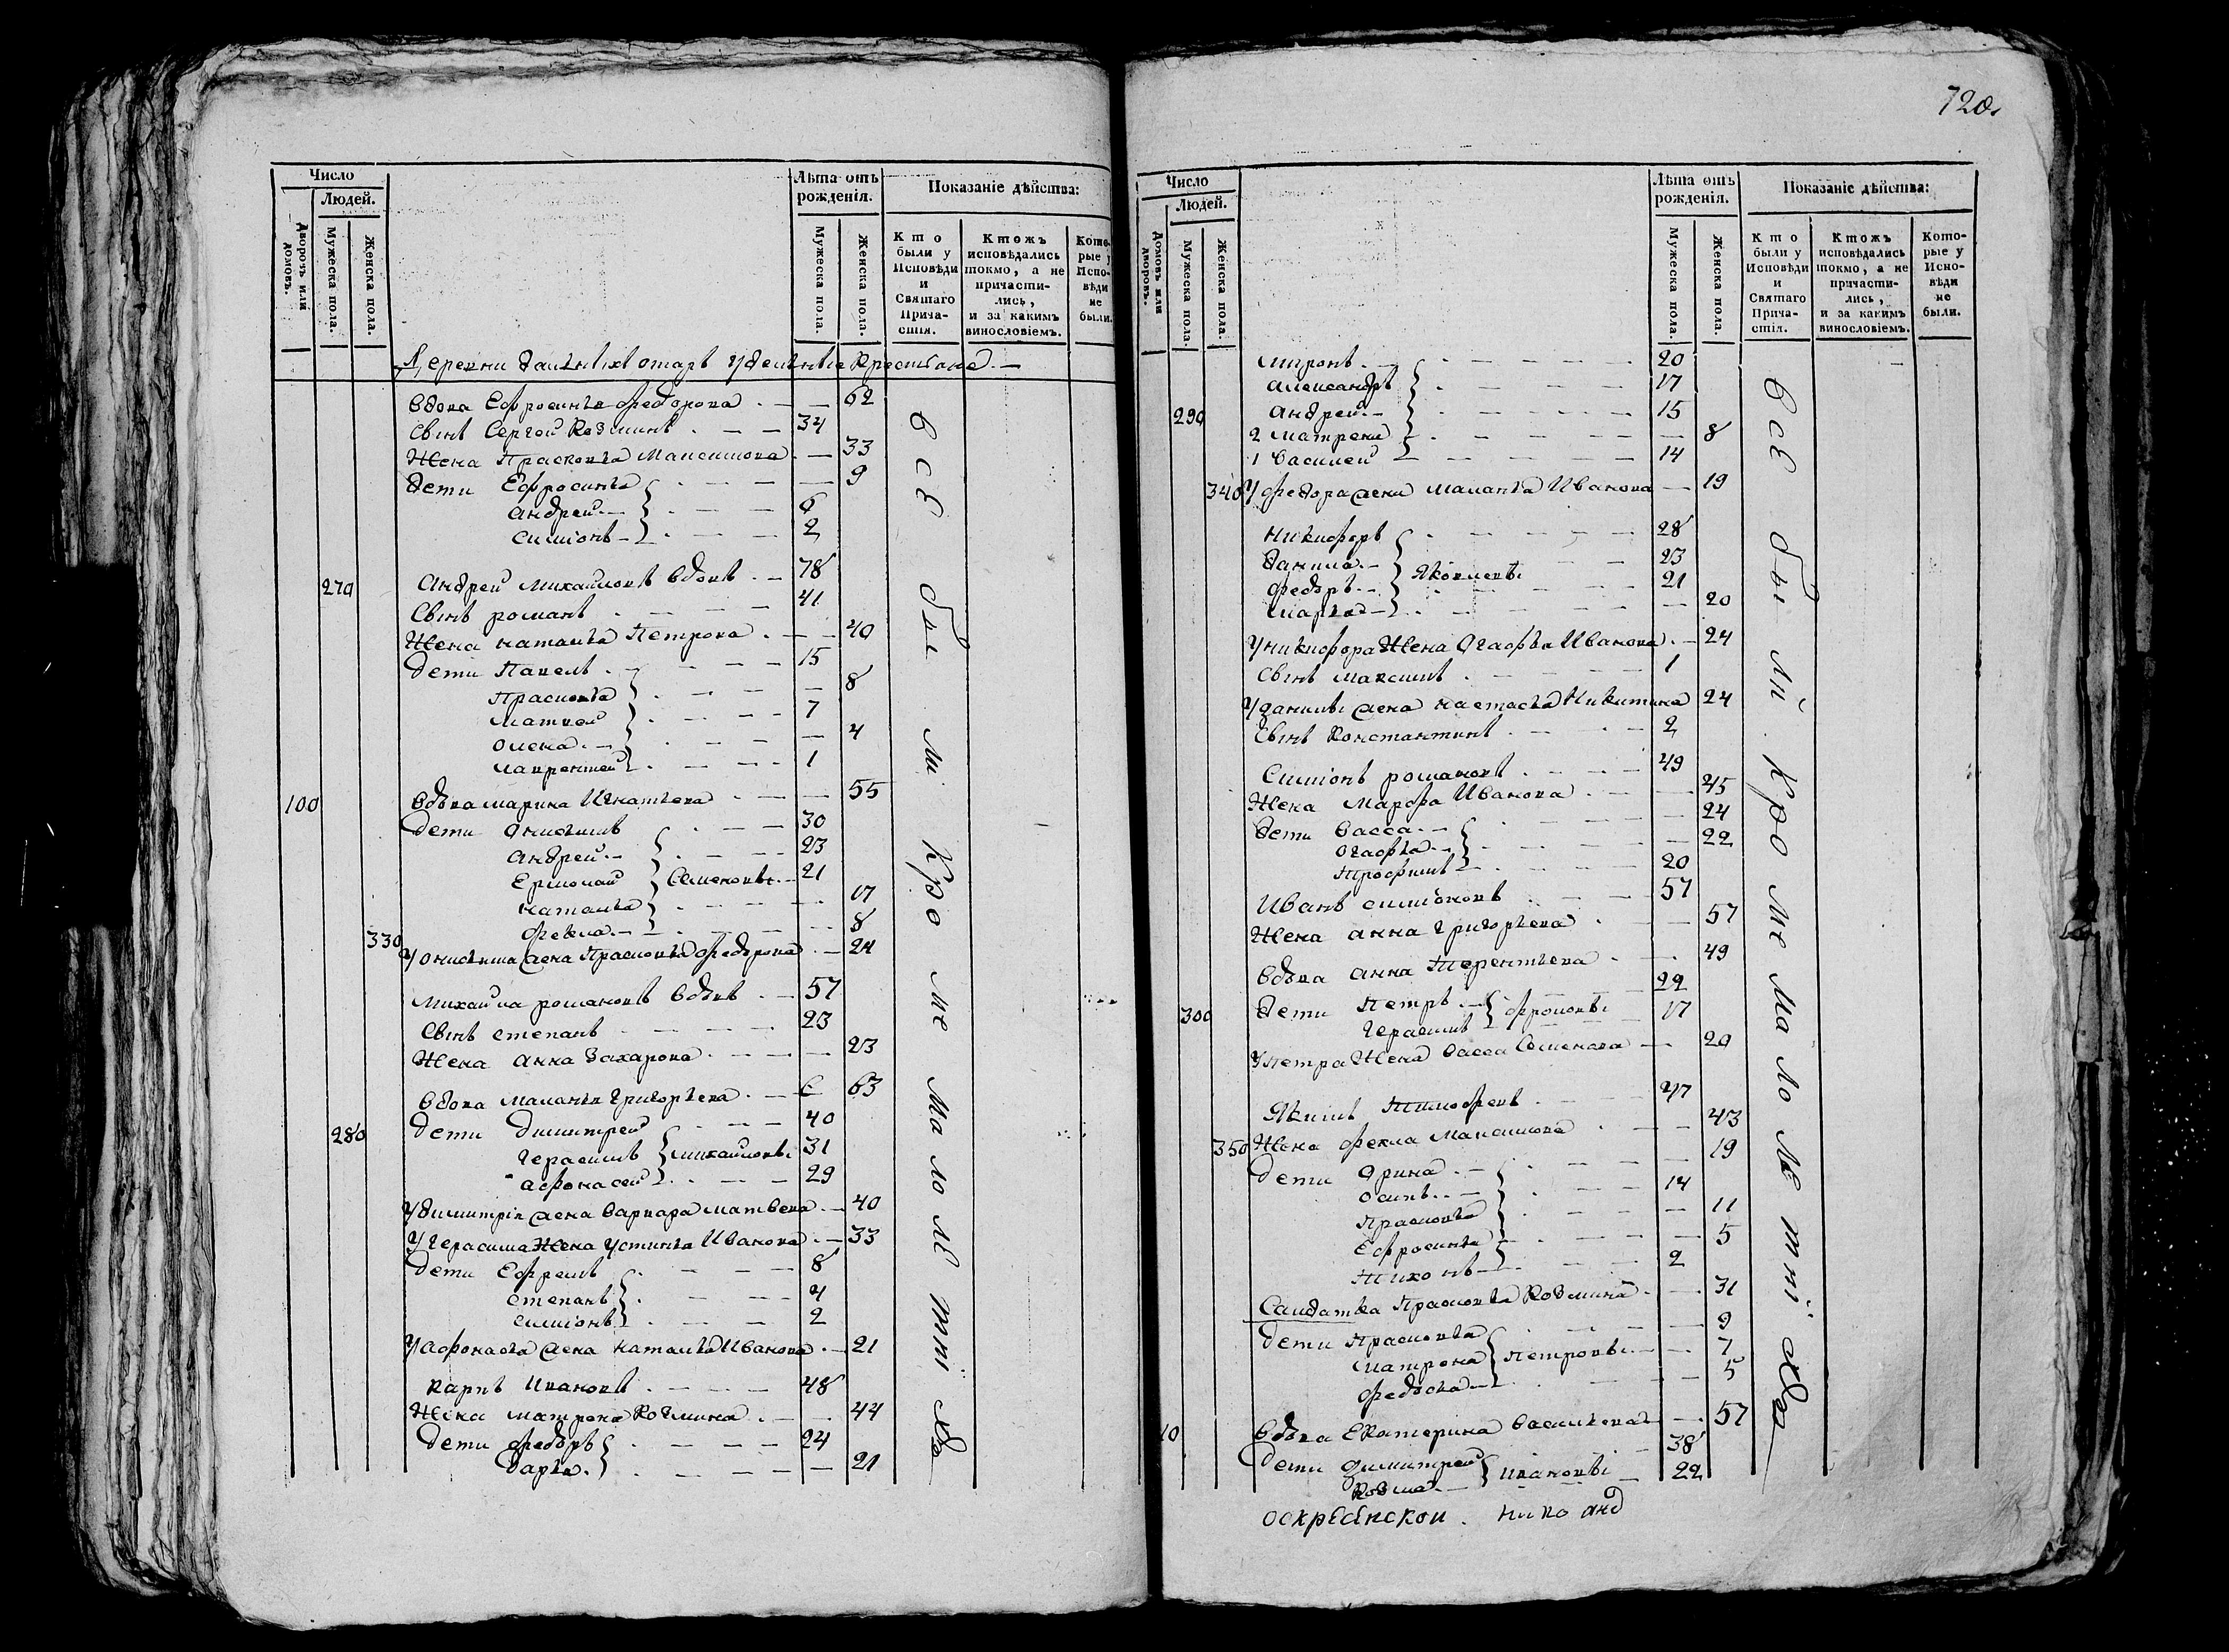 Число
Людей.
Дворочъ или домовъ.
Мужеска пола.
Женска пола.
Лѣта отъ рожденія.
Мужеска пола.
Женска пола.
Показаніе дѣйства:
Кто были у Исповѣди и Святаго Причастія.
Ктожъ исповѣдались токмо, а не причастились, и за какимъ винословіемъ.
Которые у Исповѣди не были.
Деревни удельные крестьяне
вдова Ефросинья федорова 62
Сынъ Сергей Козминъ 34
Жена Прасковья Максимова 33
дети Ефросинья 9
андрей 6
симионъ 2
270 андрей михайловъ вдовъ 78
Сынъ романъ 41
Жена наталья Петрова 40
дети Павелъ 15
Прасковья 8
матвей 7
олена 4
лаврентей 1
100 вдова марина Игнатьева 55
дети онисимъ 30
андрей 23
Ермолай Семеновы 21
наталья 17
фекла 8
330 У онисима жена Прасковья федорова 24
михайла романовъ вдовъ 57
Сынъ степанъ 23
Жена анна Захарова 23
вдова маланья григорьева 63
280 дети димитрей 40
герасимъ михайловы 31
афонасей 29
У димитрія жена варвара матвева 40
У герасима Жена устинья Иванова 33
дети Ефремъ 8
степанъ 4
симионъ 2
У афонасья жена наталья Иванова 21
карпъ Ивановъ 48
Жена матрена Козмина 44
дети федоръ 24
дарья 21
всѣ были кроме малолѣтнихъ
720
Число
Людей.
Домовъ или дворовъ.
Мужеска пола.
Женска пола.
Лѣта отъ рожденія.
Мужеска пола.
Женска пола.
Показаніе дѣйства:
Кто были у Исповѣди и Святаго Причастія.
Ктожъ исповѣдались токмо, а не причастились, и за какимъ винословіемъ.
Которые у Исповѣди не были.
миронъ 20
александръ 17
290 андрей 15
2 матрена 8
1 василей 14
340 У федора жена маланья Иванова 19
никифоръ 28
данила Яковлевы 23
федоръ 21
марья 20
У никифора Жена Огафья Иванова 24
Сынъ максимъ 1
У данилы жена настасья Никитина 24
Сынъ Константинъ 2
Симионъ романовъ 49
Жена марфа Иванова 45
дети васса 24
огафья 22
трофимъ 20
Иванъ симионовъ 57
Жена анна григорьева 57
вдова анна терентьева 49
дети Петръ фроловы 22
300 герасимъ 17
У Петра Жена васса Семенова 20
Якимъ Тимофеевъ 47
350 Жена фекла максимова 43
дети Орина 19
осипъ 14
Прасковья 11
Ефросинья 5
Тихонъ 2
Салдатка Прасковья Козмина 31
дети Прасковья 9
матрона Петровы 7
федосья 5
10 вдова Екатерина васильева 57
дети димитрей Ивановы 38
Козма 22
всѣ были кроме малолѣтнихъ